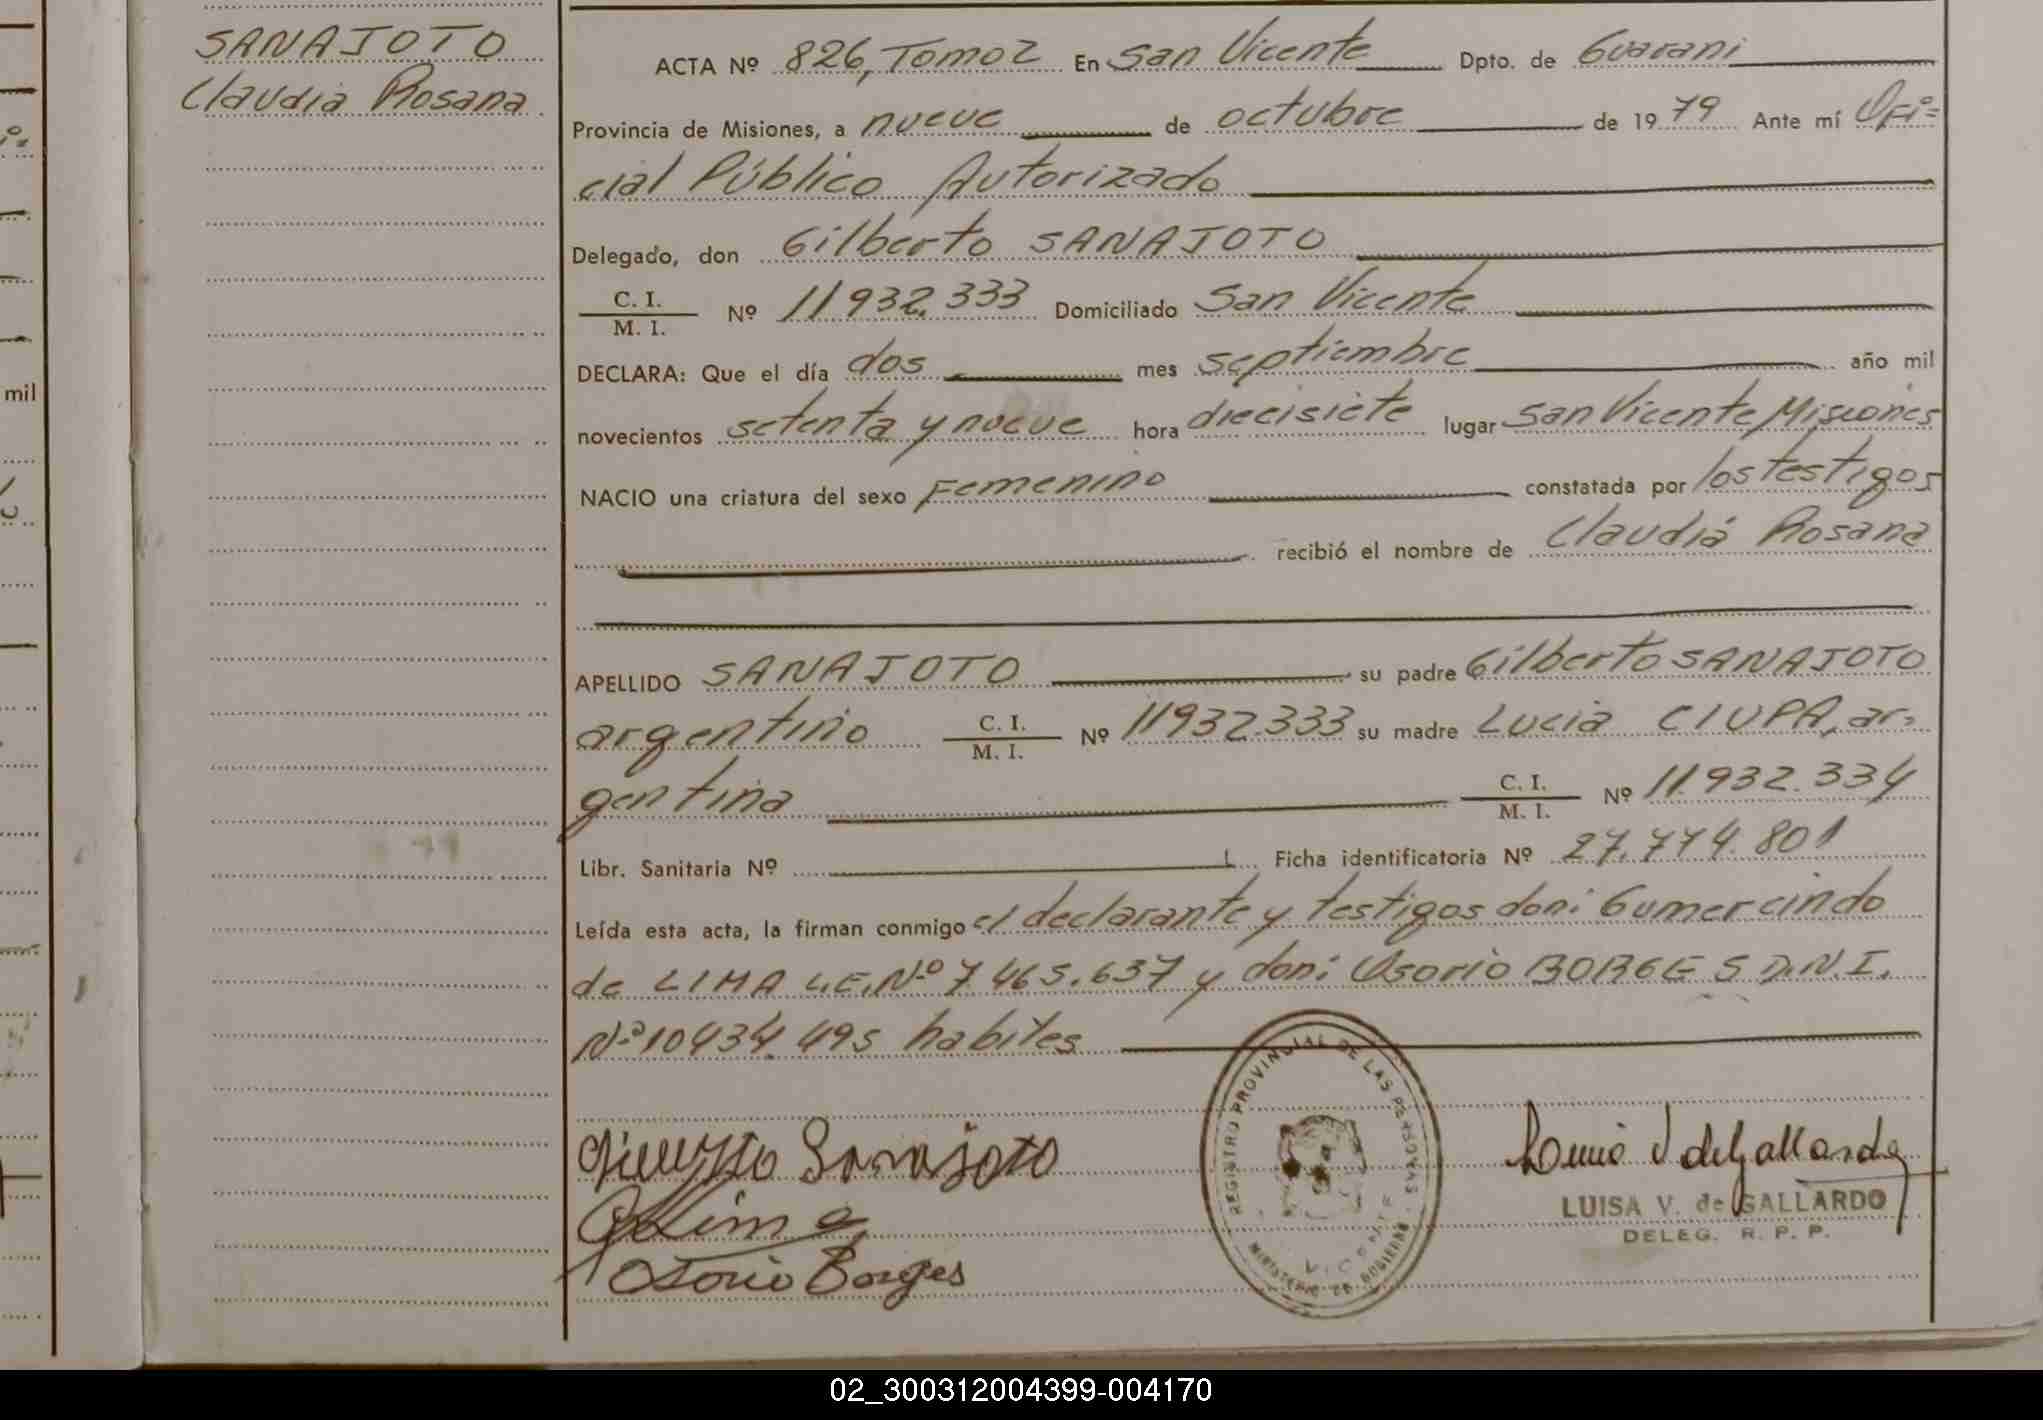 SANAJOTO
Claudia Rosana
ACTA Nº 826, Tomo 2 En San Vicente Dpto. de Guarani
Provincia de Misiones, a nueve de octubre de 1979 Ante mí Ofi=
cial Público Autorizado
Delegado, don Gilberto SANAJOTO
C. I.
M. I. Nº 11932.333 Domiciliado San Vicente
DECLARA: Que el día dos mes septiembre año mil
novecientos setenta y nueve hora diecisiete lugar San Vicente, Misiones
NACIO una criatura del sexo Femenino constatada por los testigos
recibió el nombre de Claudia Rosana
APELLIDO SANAJOTO su padre Gilberto SANAJOTO
argentino C. I.
M. I. Nº 11932.333 su madre Lucia CIUPA, ar=
gentina C. I.
M. I. Nº 11.932.334
Libr. Sanitaria Nº Ficha identificatoria Nº 27.774.801
Leída esta acta, la firman conmigo el declarante y testigos don: Gumercindo
de LIMA L.E.Nº 7.465.637 y don: Osorio BORGES D.N.I.
Nº 10434.495 habiles
Gilberto Sanajoto
GdLima
Osorio Borges
REGISTRO PROVINCIAL DE LAS PERSONAS
MINISTERIO DE GOBIERNO
Luisa V de Gallardo
LUISA V. de GALLARDO
DELEG. R. P. P.
mil
02_300312004399-004170